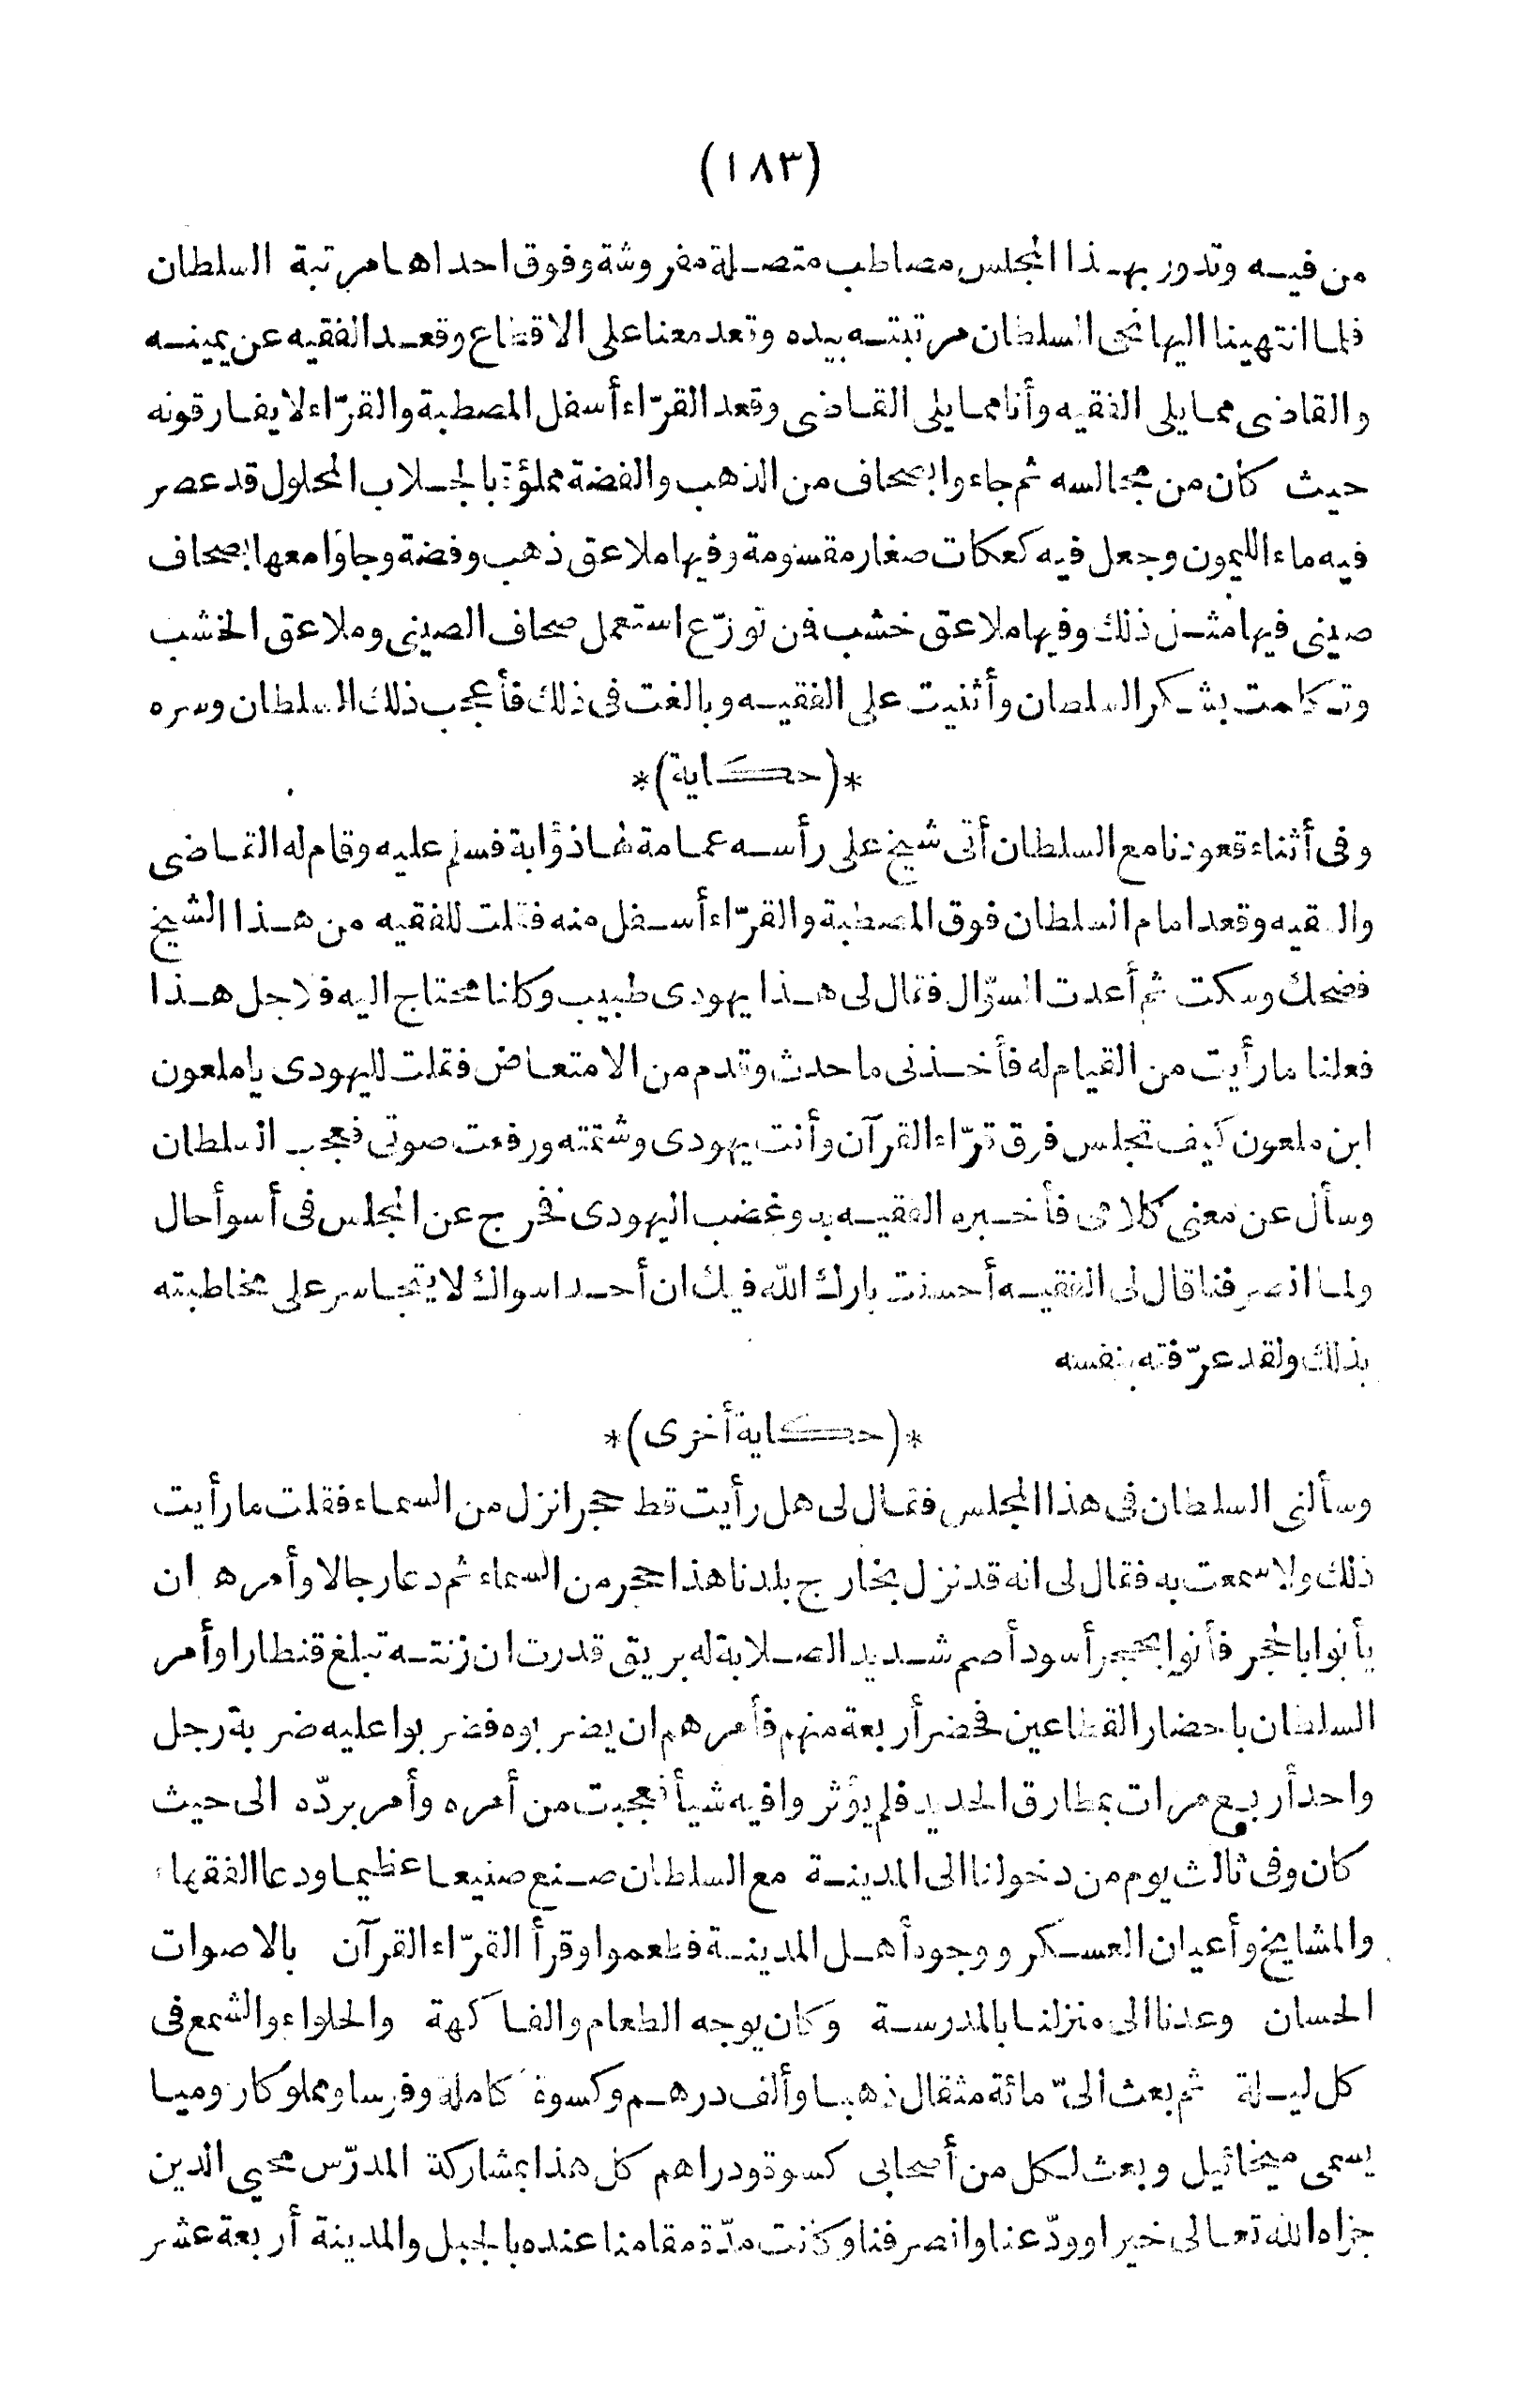 (١٨٣)
من فيه وتدور بهذا المجلس مصاطب متصلة مفروشة وفوق احداها مرتبة السلطان
فلما انتهينا اليها نحى السلطان مرتبته بيده وقعد معنا على الاقطاع وقعد الفقيه عن يمينه
والقاضى مما يلى الفقيه وأنا مما يلى القاضى وقعد القرّاء أسفل المصطبة والقرّاء لا يفارقونه
حيث كان من مجالسه ثم جاءوا بصحاف من الذهب والفضة مملوّة بالجلاب المحلول قد عصر
فيه ماء الليمون وجعل فيه كعكات صغار مقسومة وفيها ملاعق ذهب وفضة وجاؤا معها بصحاف
صينى فيها مثل ذلك وفيها ملاعق خشب فمن تورّع استعمل صحاف الصينى وملاعق الخشب
وتكلمت بشكر السلطان وأثنيت على الفقيه وبالغت فى ذلك فأعجب ذلك السلطان وسره
*(حكاية)*
وفى أثناء قعودنا مع السلطان أتى شيخ على رأسه عمامة لها ذؤابة فسلم عليه وقام له القاضى
والفقيه وقعد امام السلطان فوق المصطبة والقرّاء أسفل منه فقلت للفقيه من هذا الشيخ
فضحك وسكت ثم أعدت السؤال فقال لى هذا يهودى طبيب وكلنا محتاج اليه فلاجل هذا
فعلنا ما رأيت من القيام له فأخذنى ما حدث وقدم من الامتعاض فقلت لليهودى يا ملعون
ابن ملعون كيف تجلس فوق قرّاء القرآن وأنت يهودى وشتمته ورفعت صوتى فعجب السلطان
وسأل عن معنى كلامى فأخبره الفقيه به وغضب اليهودى فخرج عن المجلس فى أسوأ حال
ولما انصرفنا قال لى الفقيه أحسنت بارك الله فيك ان أحدا سواك لا يتجاسر على مخاطبته
بذلك ولقد عرّفته بنفسه
*(حكاية أخرى)*
وسألنى السلطان فى هذا المجلس فقال لى هل رأيت قط حجرا نزل من السماء فقلت ما رأيت
ذلك ولا سمعت به فقال لى انه قد نزل بخارج بلدنا هذا حجر من السماء ثم دعا رجالا وأمرهم ان
يأتوا بالحجر فأتوا بحجر أسود أصم شديد الصلابة له بريق قدرت ان زنته تبلغ قنطارا وأمر
السلطان باحضار القطاعين فحضر أربعة منهم فأمرهم ان يضربوه فضربوا عليه ضربة رجل
واحد أربع مرات بمطارق الحديد فلم يؤثروا فيه شيأ فعجبت من أمره وأمر بردّه الى حيث
كان وفى ثالث يوم من دخولنا الى المدينة مع السلطان صنع صنيعا عظيما ودعا الفقهاء
والمشايخ وأعيان العسكر ووجوه أهل المدينة فطعموا وقرأ القرّاء القرآن بالاصوات
الحسان وعدنا الى منزلنا بالمدرسة وكان يوجه الطعام والفاكهة والحلواء والشمع فى
كل ليلة ثم بعث الىّ مائة مثقال ذهبا وألف درهم وكسوة كاملة وفرسا ومملوكا روميا
يسمى ميخائيل وبعث لكل من أصحابى كسوة ودراهم كل هذا بمشاركة المدرّس محيى الدين
جزاه الله تعالى خيرا وودّعنا وانصرفنا وكانت مدّة مقامنا عنده بالجبل والمدينة أربعة عشر